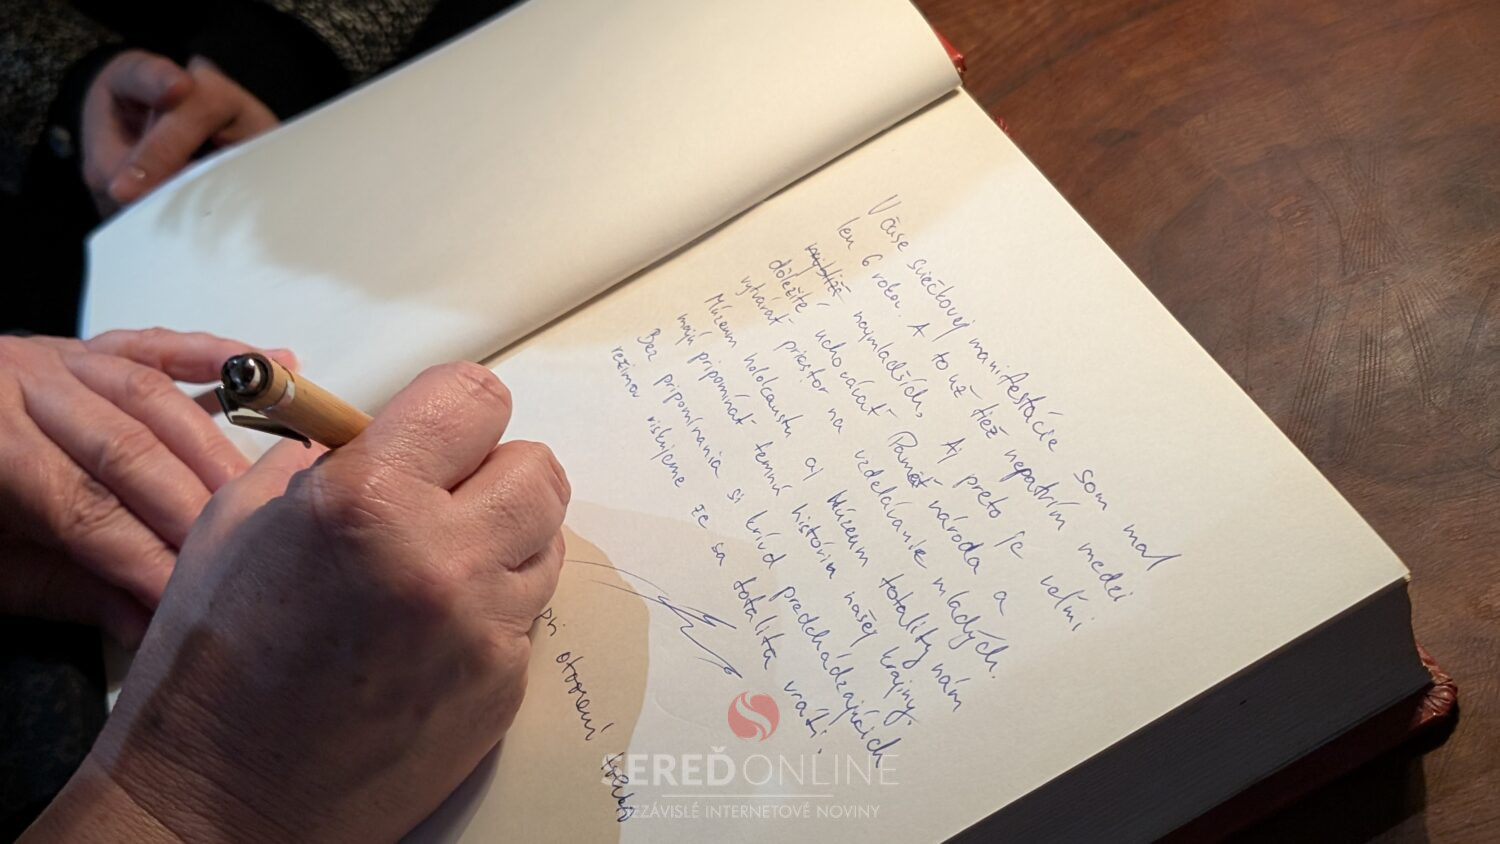 V čase sviečkovej manifestácie som mal
len 6 rokov. A to už tiež nepatrím medzi
najmladších. Aj preto je veľmi
dôležité uchovávať Pamäť národa a
vytvárať priestor na vzdelávanie mladých.
Múzeum holokaustu aj Múzeum totality nám
majú pripomínať temnú históriu našej krajiny.
Bez pripomínania si krívd predchádzajúcich
režimov riskujeme že sa totalita vráti.
pri otvorení
SEREĎONLINE
NEZÁVISLÉ INTERNETOVÉ NOVINY